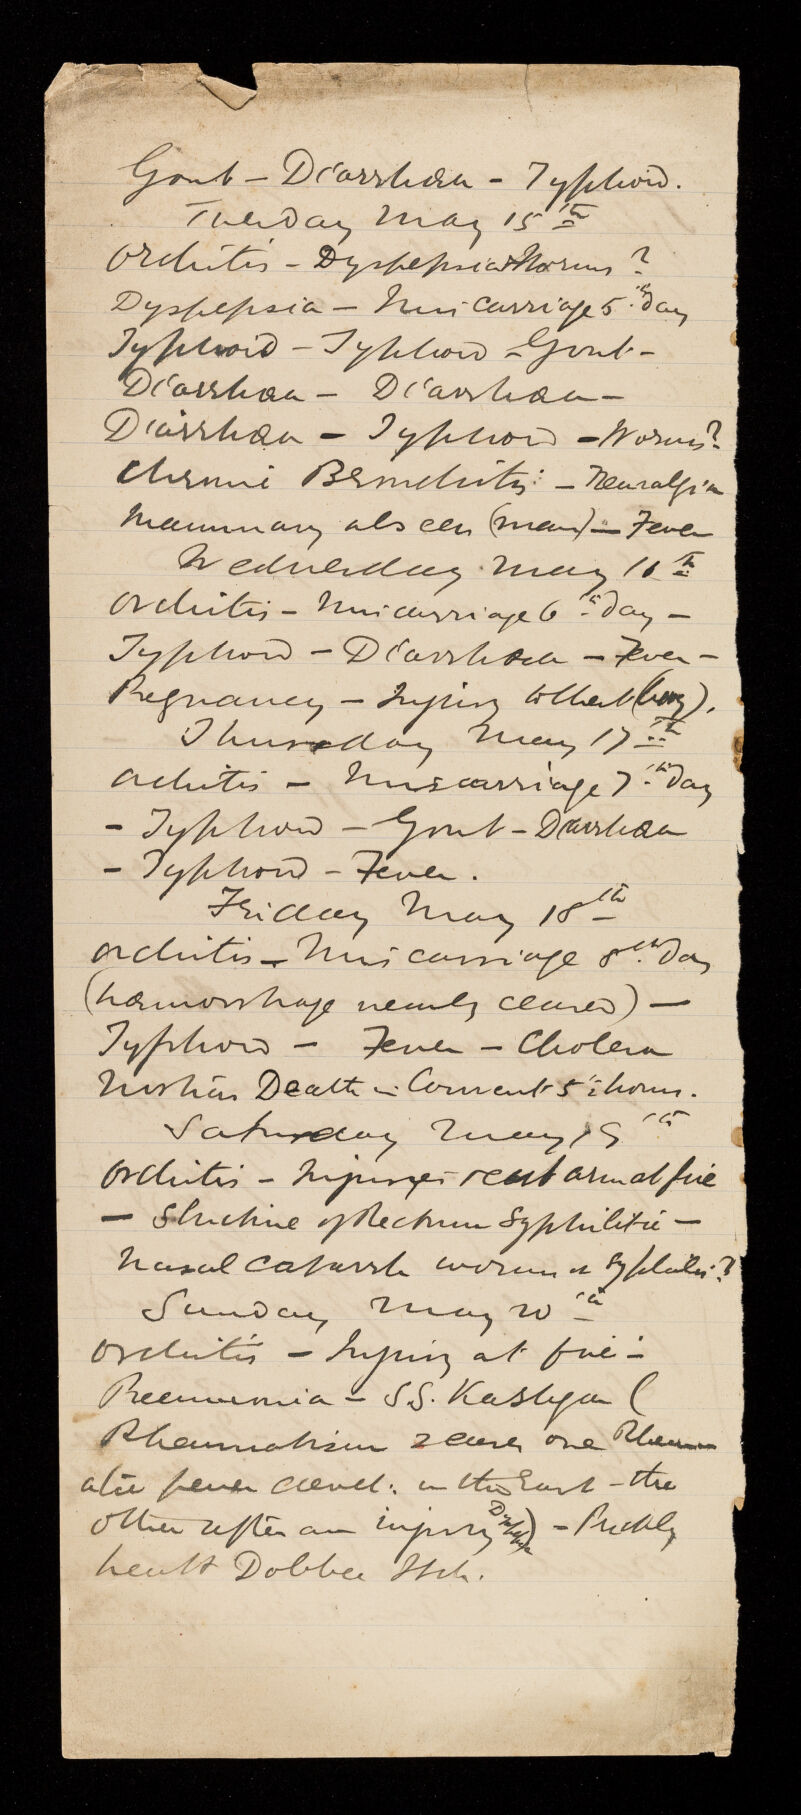 Gout - Diarrhœa - Typhoid.
Tuesday May 15th
Orchitis - Dyspepsia Worms?
Dyspepsia - Miscarriage 5th day
Typhoid - Typhoid - Gout -
Diarrhœa - Diarrhœa -
Diarrhœa - Typhoid - Worms?
Chronic Bronchitis - Neuralgia
Mammary abscess (man) - Fever
Wednesday May 16th
Orchitis - Miscarriage 6th day -
Typhoid - Diarrhœa - Fever -
Pregnancy - Injury to
Thursday May 17th
Orchitis - Miscarriage 7th day
- Typhoid - Gout - Diarrhœa
- Typhoid - Fever.
Friday May 18th
Orchitis - Miscarriage 8th day
(hæmorrhage nearly ceased) -
Typhoid - Fever - Cholera
Nostras Death in Convent 5 hours.
Saturday May 19th
Orchitis - Injury arm at fire
- Stricture of Rectum Syphilitic -
Nasal Catarrh worms or syphilis?
Sunday May 20th
Orchitis - Injury at fire -
Pneumonia - S.S. Kashgar (
Rheumatism 2 cases one Rheum
atic fever devel: in the East - the
other after an injury) - Prickly
heat Dobbee Itch.